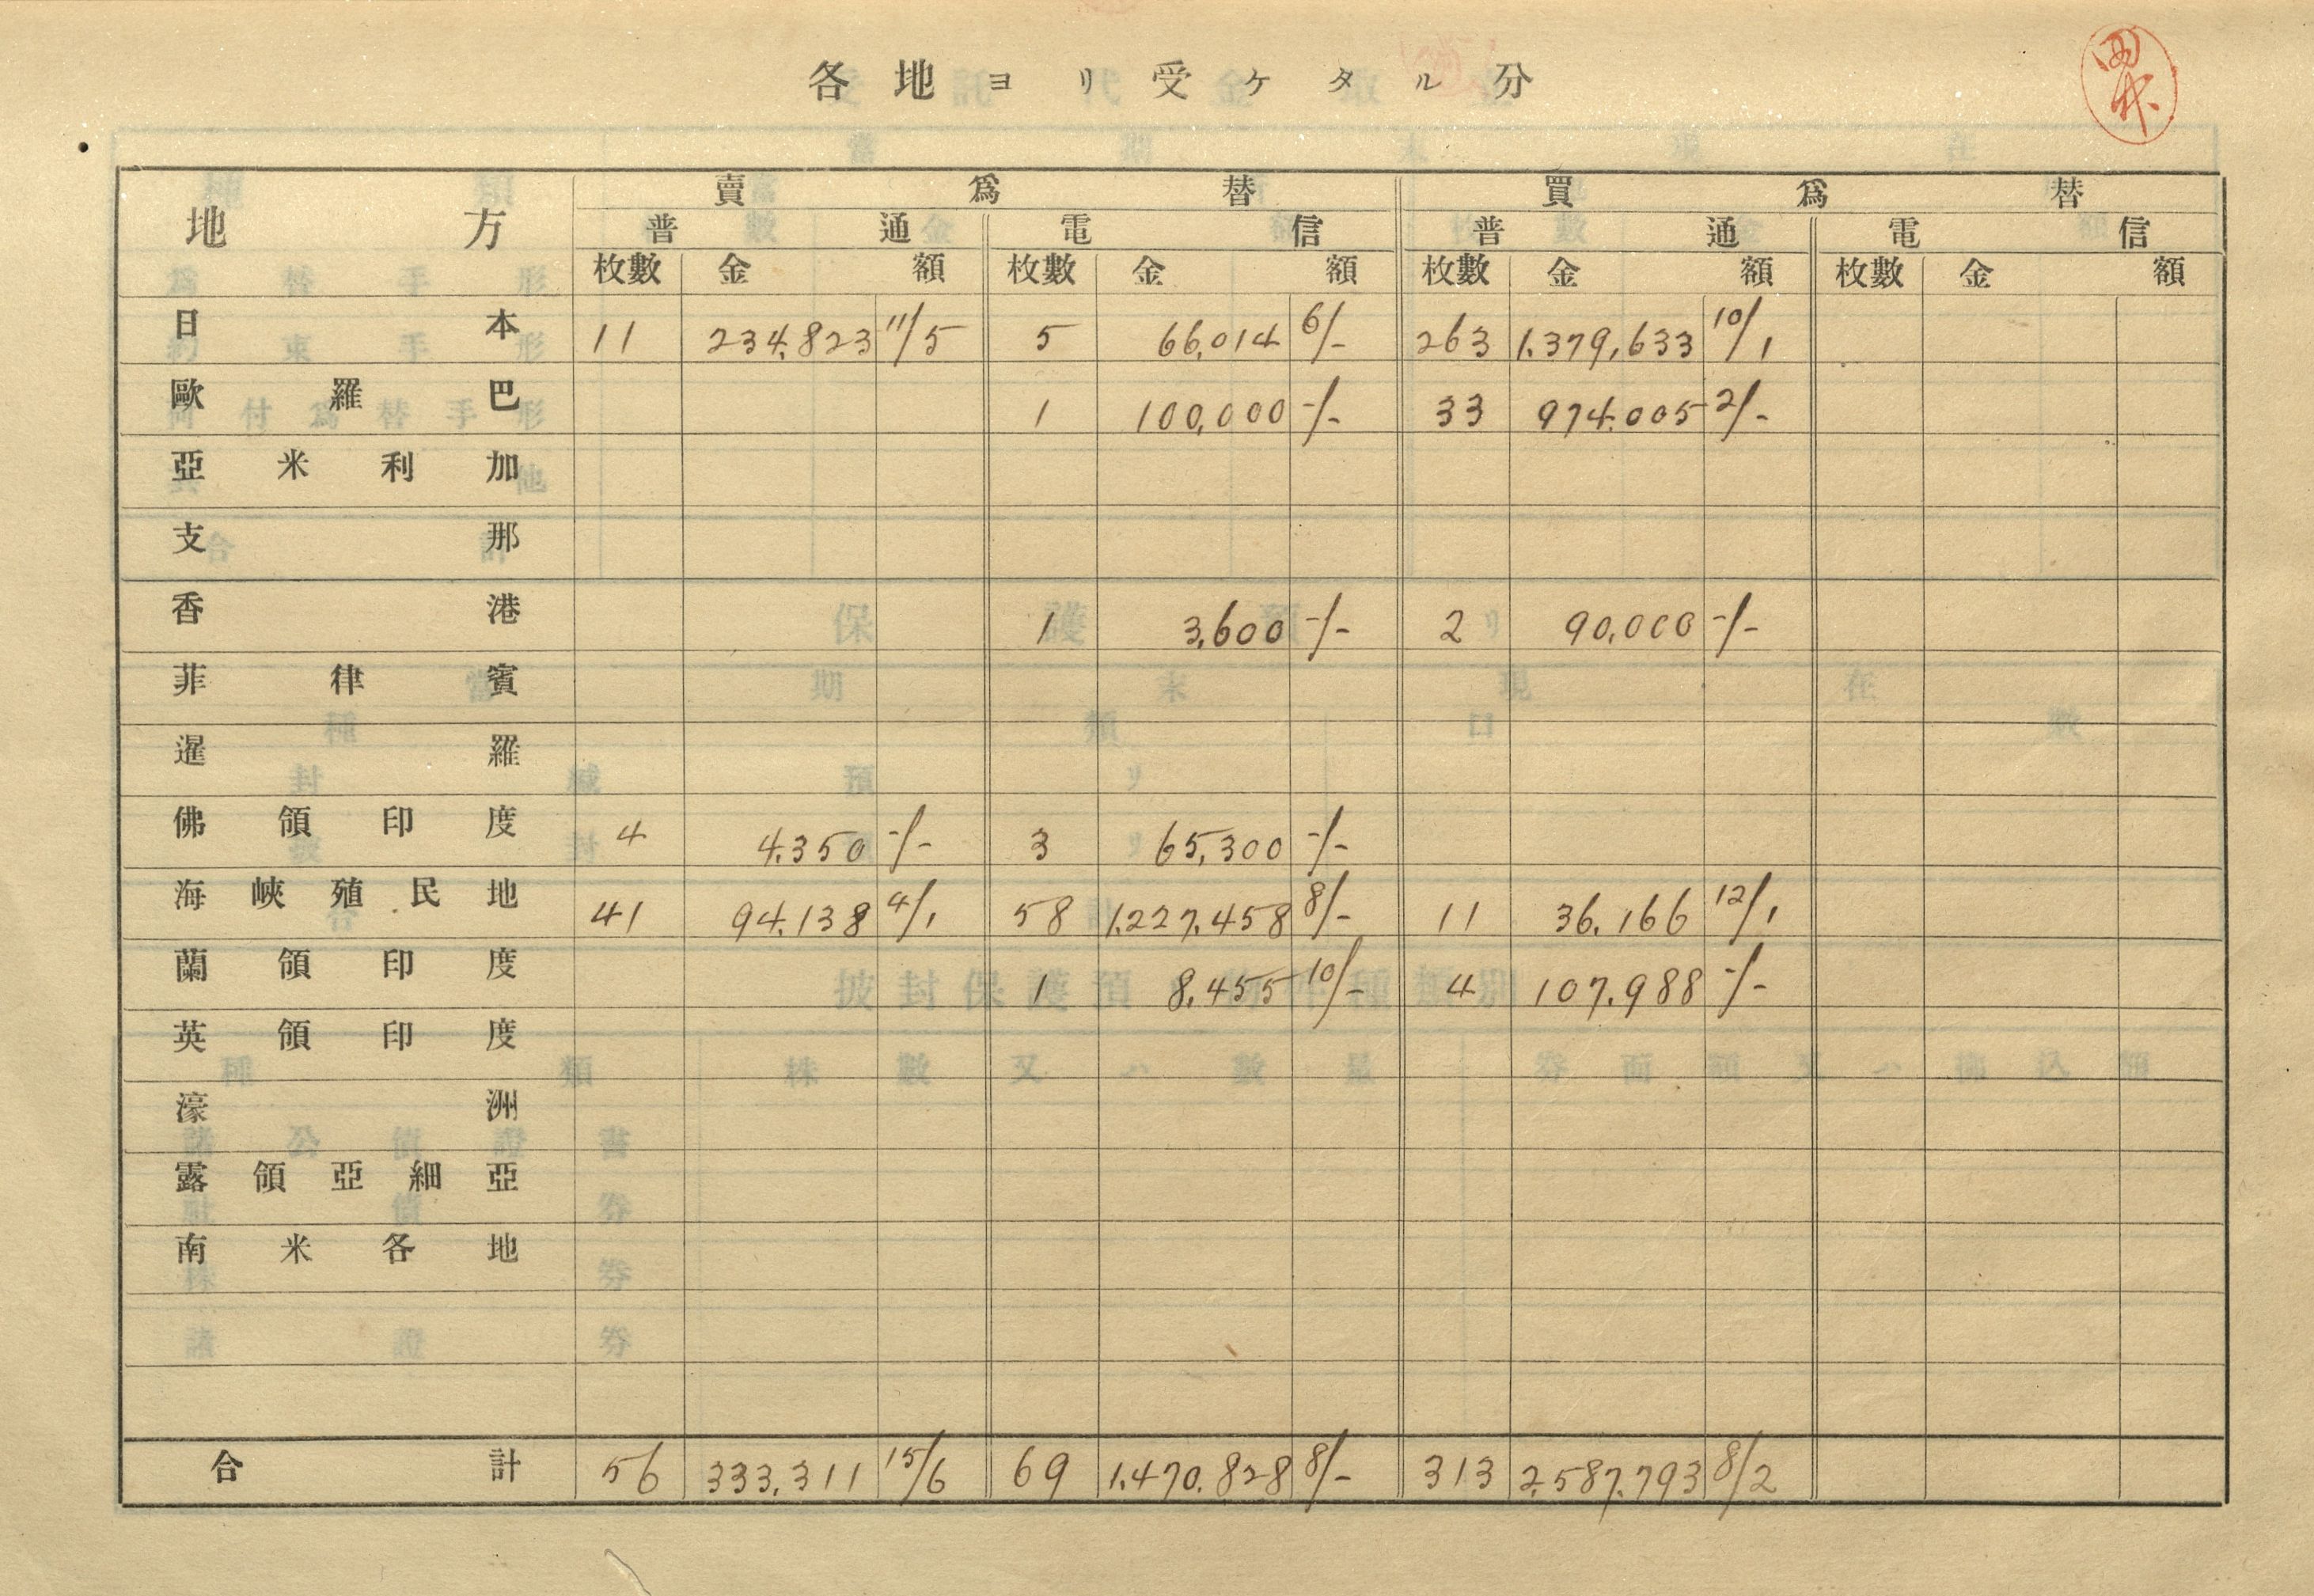 各地ヨリ受ケタル分
地方 賣爲替 買爲替
普通 電信 普通 電信
枚數 金額 枚數 金額 枚數 金額 枚數 金額
日本 11 234,823 11/5 5 66,014 6/- 263 1,379,633 10/1
歐羅巴 1 100,000 -/- 33 974,005 2/-
亞米利加
支那
香港 1 3,600 -/- 2 90,000 -/-
菲律賓
暹羅
佛領印度 4 4,350 -/- 3 65,300 -/-
海峽殖民地 41 94,138 4/1 58 1,227,458 8/- 11 36,166 12/1
蘭領印度 1 8,455 10/- 4 107,988 -/-
英領印度
濠洲
露領亞細亞
南米各地
合計 56 333,311 15/6 69 1,470,828 8/- 313 2,587,793 8/2